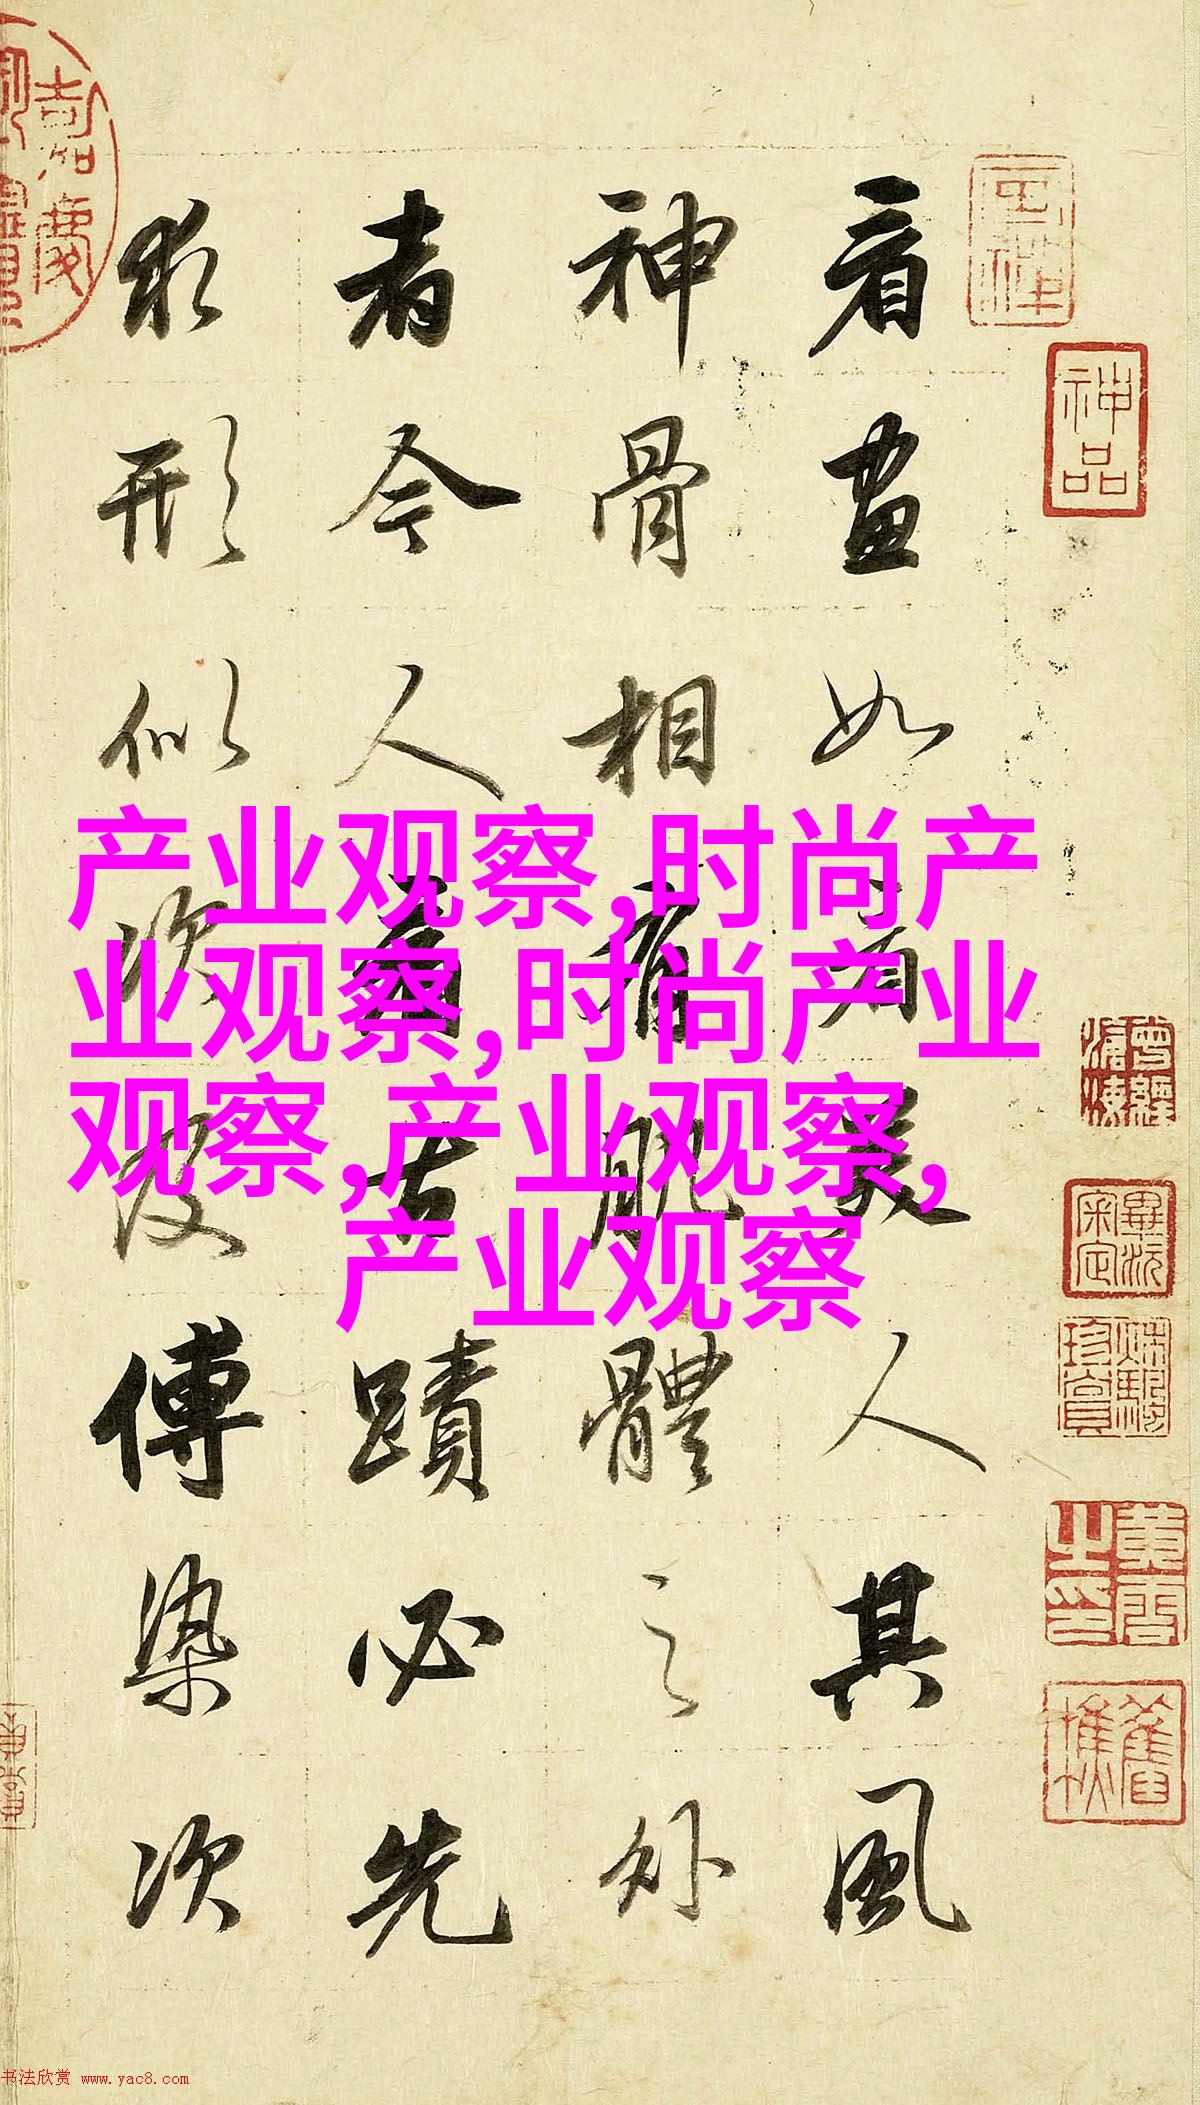 看畫如看美人其風
神骨相有肌體之外
者今人看古蹟必先
求形似次及傅染次
产业观察,时尚产
业观察,时尚产业
观察,产业观察,
产业观察
神品
嘉慶
书法欣赏 www.yac8.com